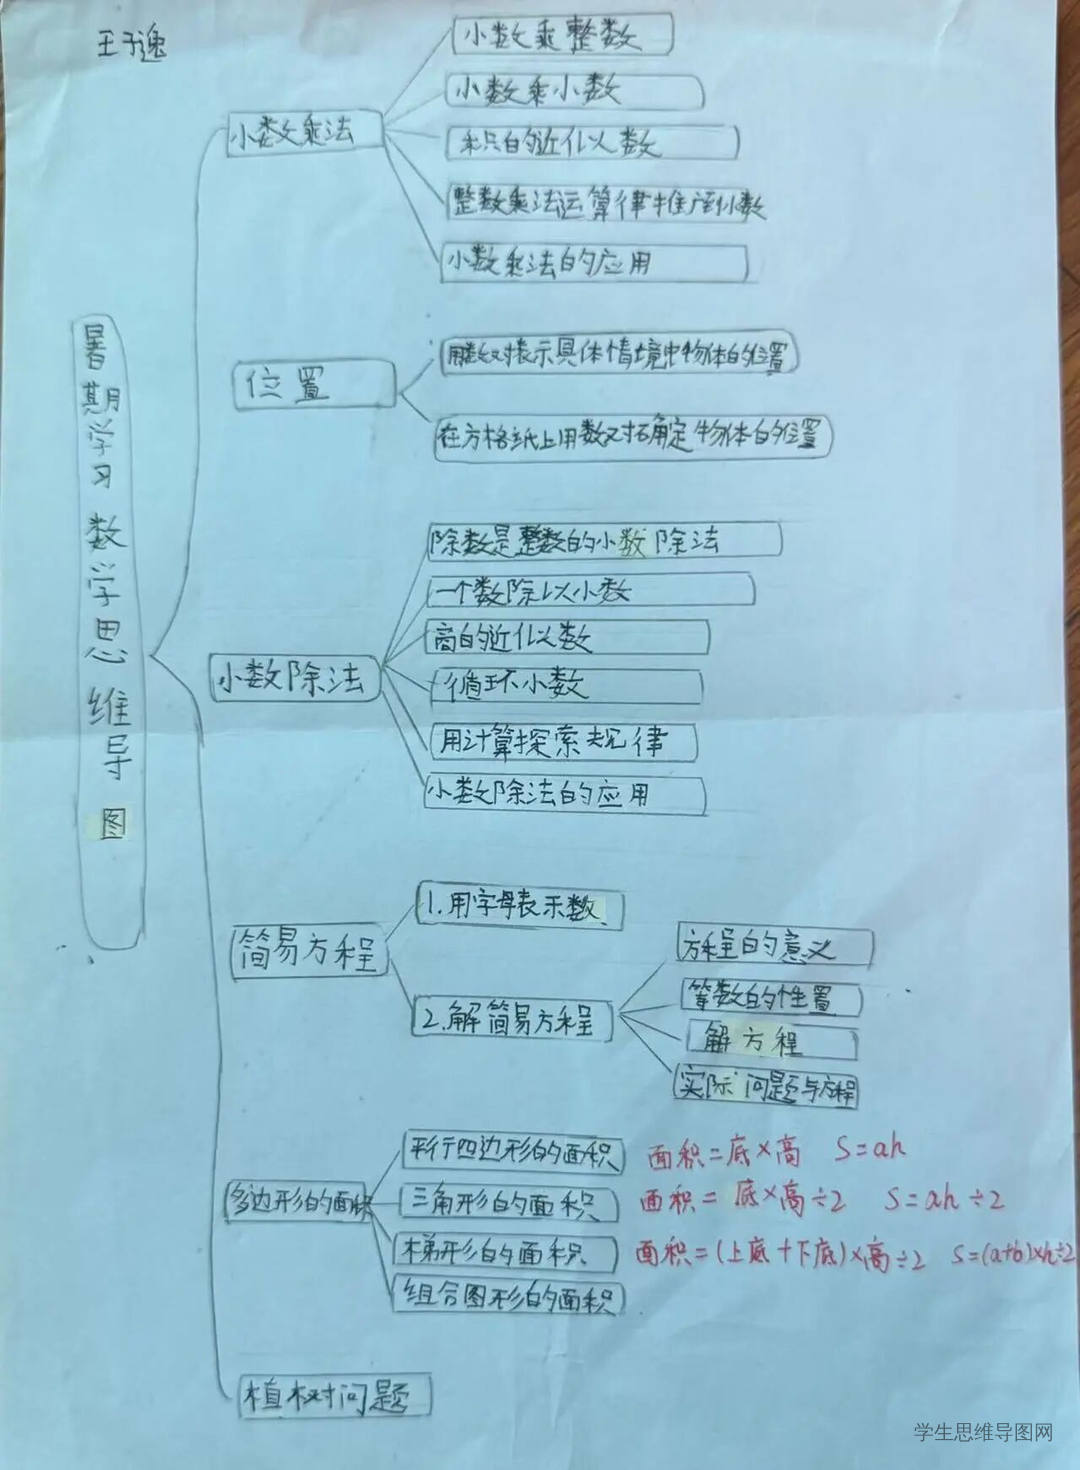 王子逸
暑期学习数学思维导图
小数乘法
小数乘整数
小数乘小数
积的近似数
整数乘法运算律推广到小数
小数乘法的应用
位置
用数对表示具体情境中物体的位置
在方格纸上用数对确定物体的位置
小数除法
除数是整数的小数除法
一个数除以小数
商的近似数
循环小数
用计算探索规律
小数除法的应用
简易方程
1.用字母表示数
2.解简易方程
方程的意义
等数的性置
解方程
实际问题与方程
多边形的面积
平行四边形的面积 面积=底×高 S=ah
三角形的面积 面积=底×高÷2 S=ah÷2
梯形的面积 面积=(上底+下底)×高÷2 S=(a+b)×h÷2
组合图形的面积
植树问题
学生思维导图网